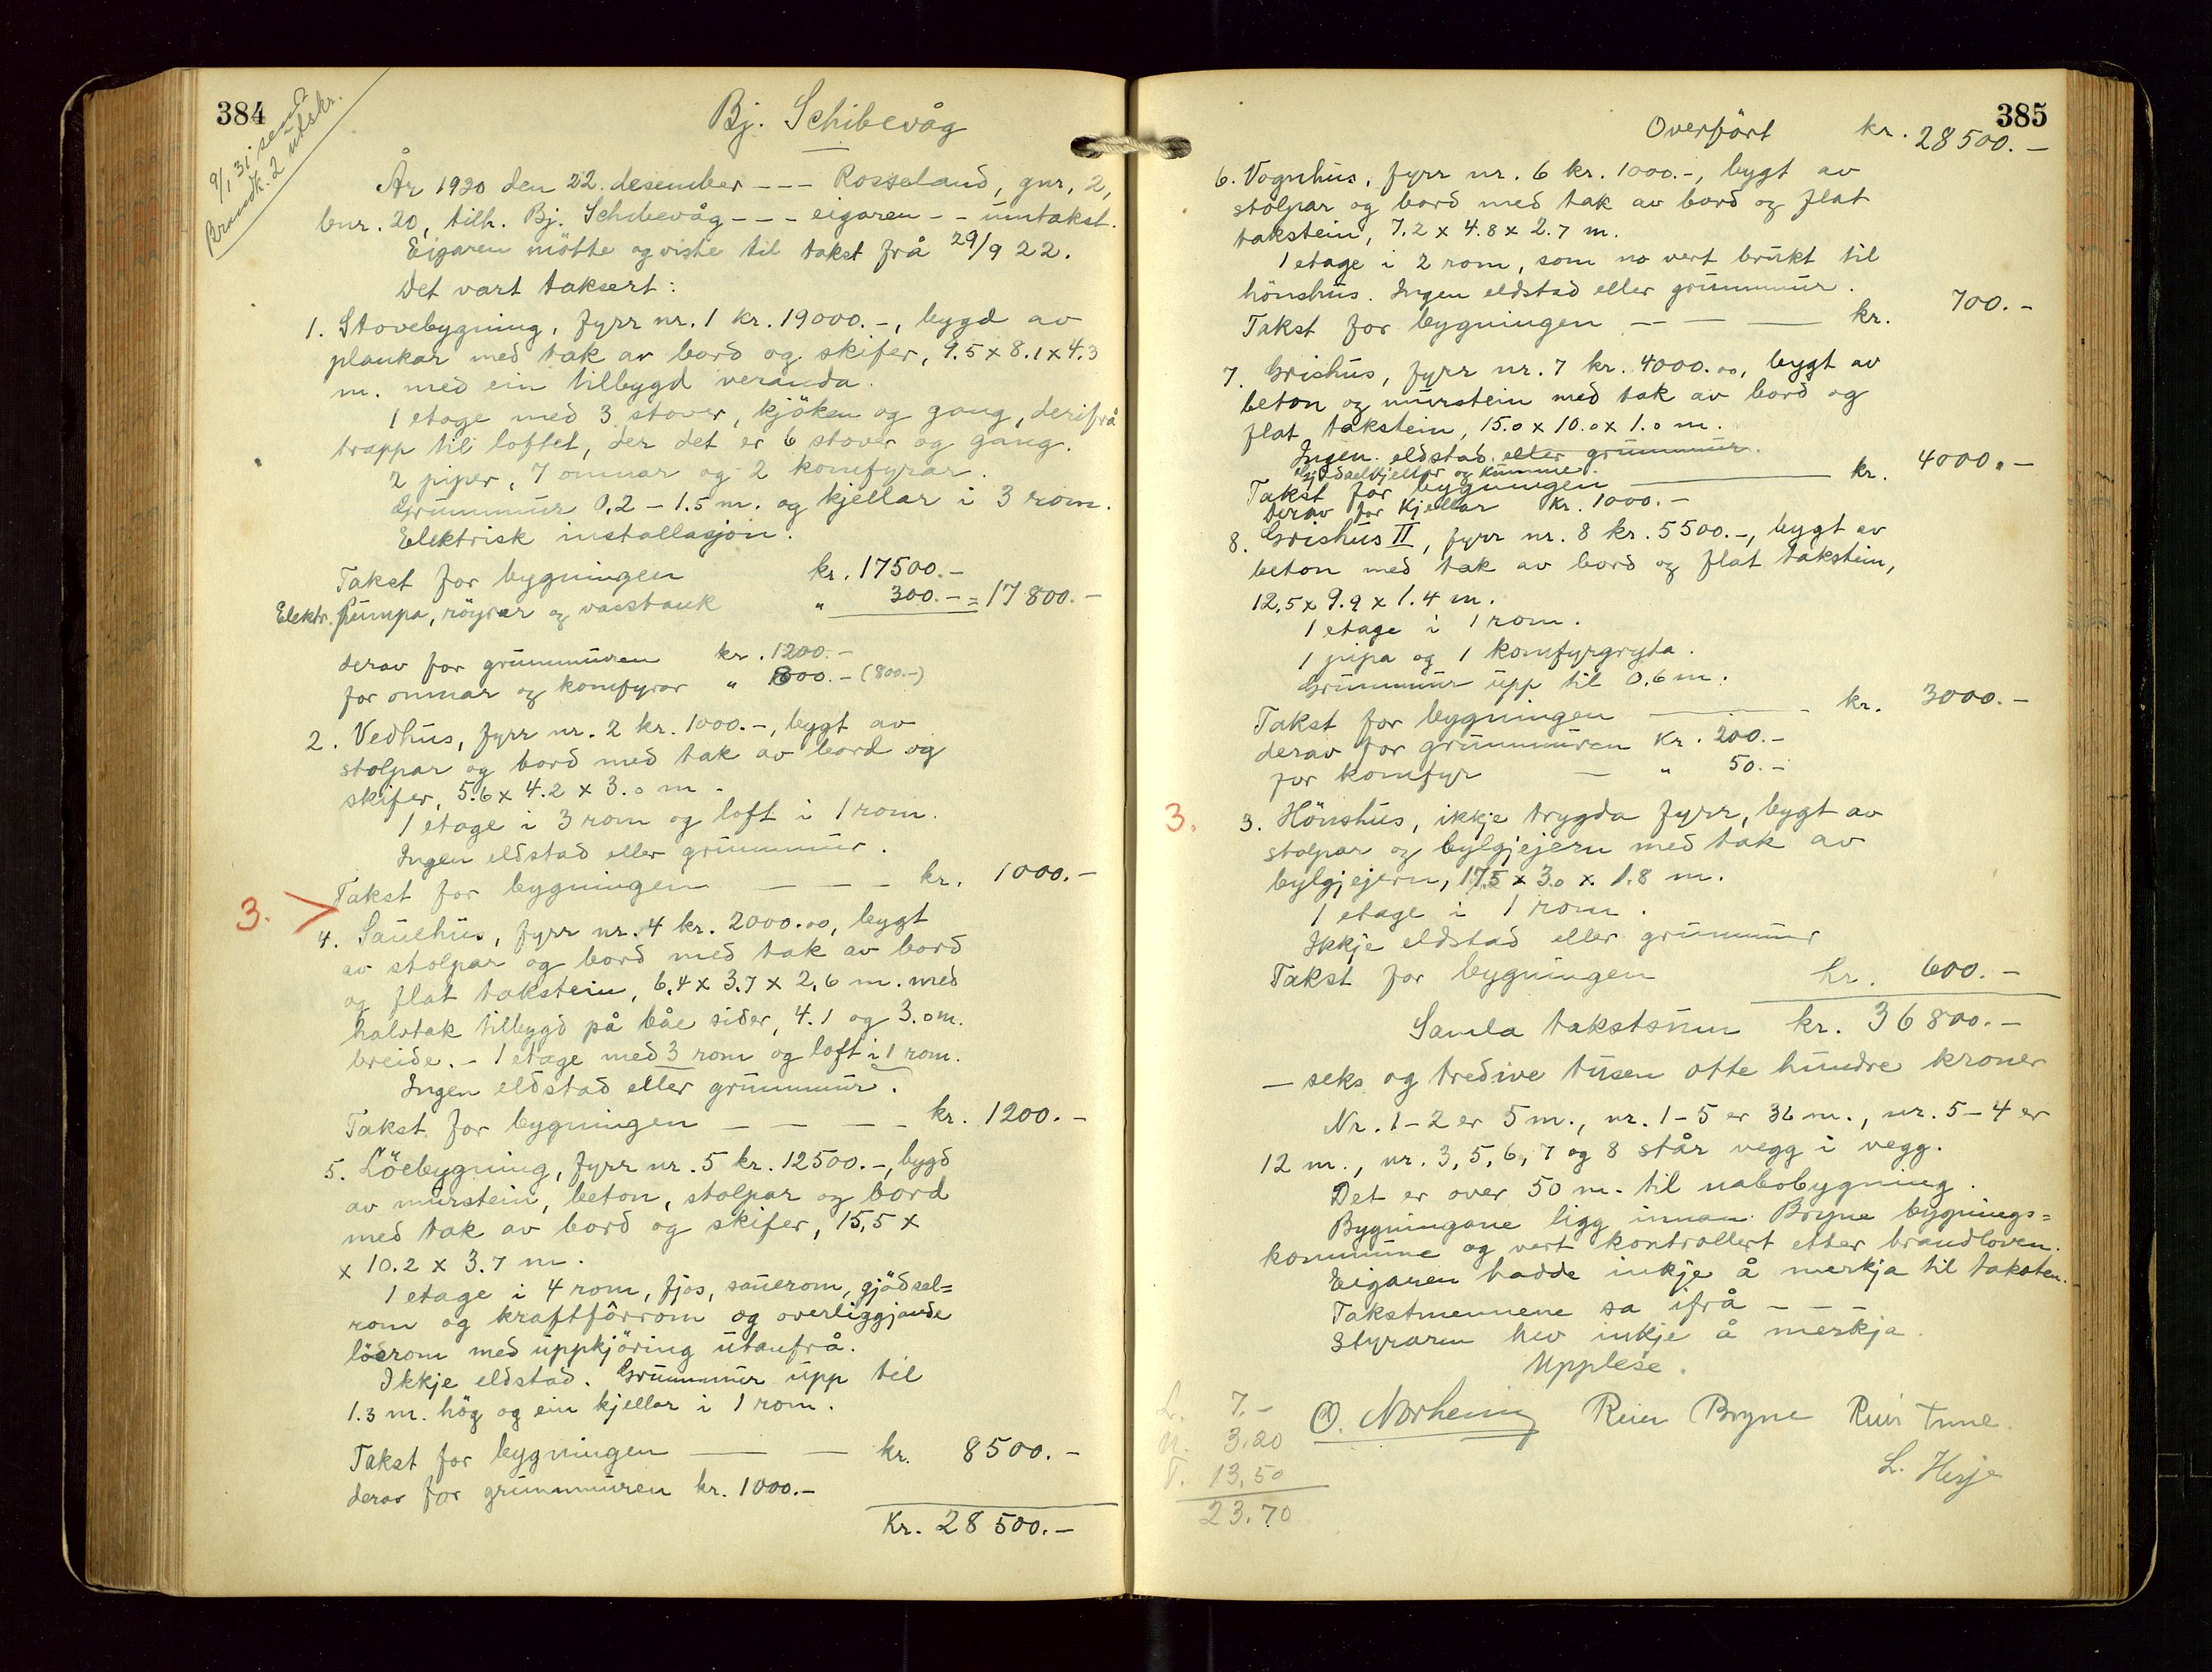 384
9/1 31 sendt
Brandk. 2 utskr.
Bj. Schibevåg
År 1930 den 22. desember - - - Rosseland, gnr. 2,
bnr. 20, tilh. Bj. Schibevåg - - - eigaren - - umtakst.
Eigaren mötte og viste til takst frå 29/9 22.
Det vart taksert:
1. Stovebygning, fyrr nr. 1 kr. 19000.-, bygd av
plankar med tak av bord og skifer, 9.5 x 8.1 x 4.3
m. med ein tilbygd veranda.
1 etage med 3 stover, kjöken og gang, derifrå
trapp til loftet, der det er 6 stover og gang.
2 piper, 7 omnar og 2 komfyrar.
Grunnmur 0.2 - 1.5 m. og kjellar i 3 rom.
Elektrisk installasjon.
Takst for bygningen kr. 17500.-
Elektr. pumpa, röyrar og vasstank " 300.- = 17800.-
derav for grunnmuren kr. 1200.-
for omnar og komfyrar " 800.- (800.-)
2. Vedhus, fyrr nr. 2 kr. 1000.-, bygt av
stolpar og bord med tak av bord og
skifer, 5.6 x 4.2 x 3.0 m.
1 etage i 3 rom og loft i 1 rom.
Ingen eldstad eller grunnmur.
Takst for bygningen - - - kr. 1000.-
3. >
4. Sauehus, fyrr nr. 4 kr. 2000.00, bygt
av stolpar og bord med tak av bord
og flat takstein, 6.4 x 3.7 x 2.6 m. med
halvtak tilbygd på båe sider, 4.1 og 3.0 m.
breide. - 1 etage med 3 rom og loft i 1 rom.
Ingen eldstad eller grunnmur.
Takst for bygningen - - - - kr. 1200.-
5. Löebygning, fyrr nr. 5 kr. 12500.-, bygd
av murstein, beton, stolpar og bord
med tak av bord og skifer, 15.5 x
x 10.2 x 3.7 m.
1 etage i 4 rom, fjos, sauerom, gjödsel=
rom og kraftfôrrom og overliggjande
löerom med uppkjöring utanfrå.
Ikkje eldstad. Grunnmur upp til
1.3 m. hög og ein kjellar i 1 rom.
Takst for bygningen - - kr. 8500.-
derav for grunnmuren kr. 1000.-
Kr. 28500.-
385
Overfört kr. 28500.-
6. Vognhus, fyrr nr. 6 kr. 1000.-, bygt av
stolpar og bord med tak av bord og flat
takstein, 7.2 x 4.8 x 2.7 m.
1 etage i 2 rom, som no vert brukt til
hönshus. Ingen eldstad eller grunnmur.
Takst for bygningen - - - kr. 700.-
7. Grishus, fyrr nr. 7 kr. 4000.00, bygt av
beton og murstein med tak av bord og
flat takstein, 15.0 x 10.0 x 1.0 m.
Ingen eldstad eller grunnmur.
Gjödselkjellar og kumme.
Takst for bygningen - kr. 4000.-
Derav for kjellar kr. 1000.-
8. Grishus II, fyrr nr. 8 kr. 5500.-, bygt av
beton med tak av bord og flat takstein,
12.5 x 9.9 x 1.4 m.
1 etage i 1 rom.
1 pipa og 1 komfyrgryta.
Grunnmur upp til 0.6 m.
Takst for bygningen - - kr. 3000.-
derav for grunnmuren kr. 200.-
for komfyr - " 50.-
3. 3. Hönshus, ikkje trygda fyrr, bygt av
stolpar og bylgjejern med tak av
bylgjejern, 17.5 x 3.0 x 1.8 m.
1 etage i 1 rom.
Ikkje eldstad eller grunnmur
Takst for bygningen kr. 600.-
Samla takstsum kr. 36800.-
- seks og tredive tusen otte hundre kroner
Nr. 1-2 er 5 m., nr. 1-5 er 36 m., nr. 5-4 er
12 m., nr. 3, 5, 6, 7 og 8 står vegg i vegg.
Det er over 50 m. til nabobygning.
Bygningane ligg innan Bryne bygnings=
kommune og vert kontrollert etter brandloven.
Eigaren hadde inkje å merkja til taksten.
Takstmennene sa ifrå - - -
Styraren hev inkje å merkja.
Upplese.
O. Norheim Reier Bryne Reier Tune.
L. Hesje
L. 7.-
U. 3.20
T. 13,50
23.70